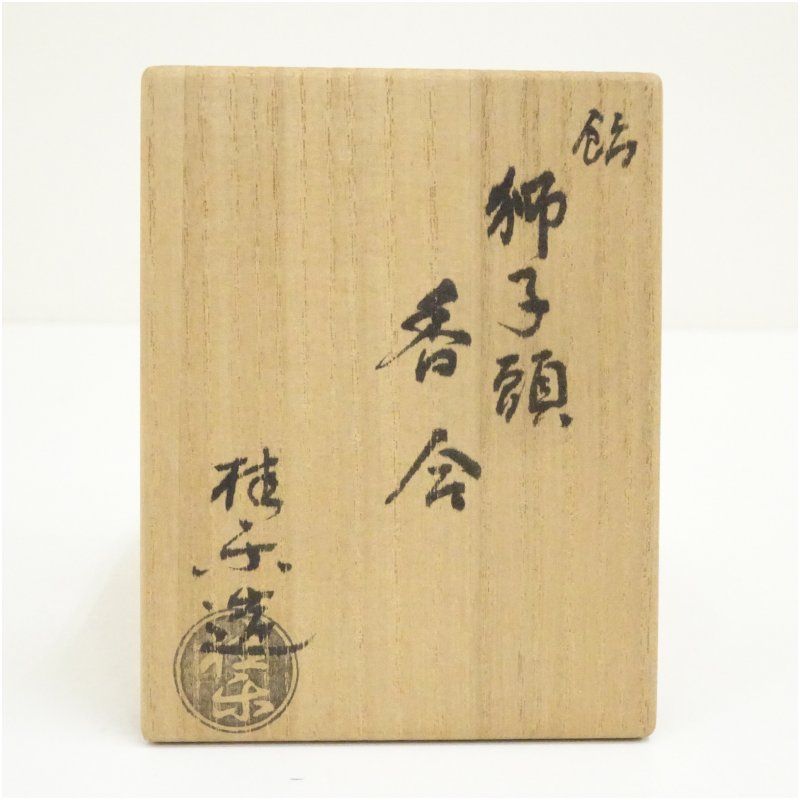 飴
獅子頭
香合
桂楽造
桂楽